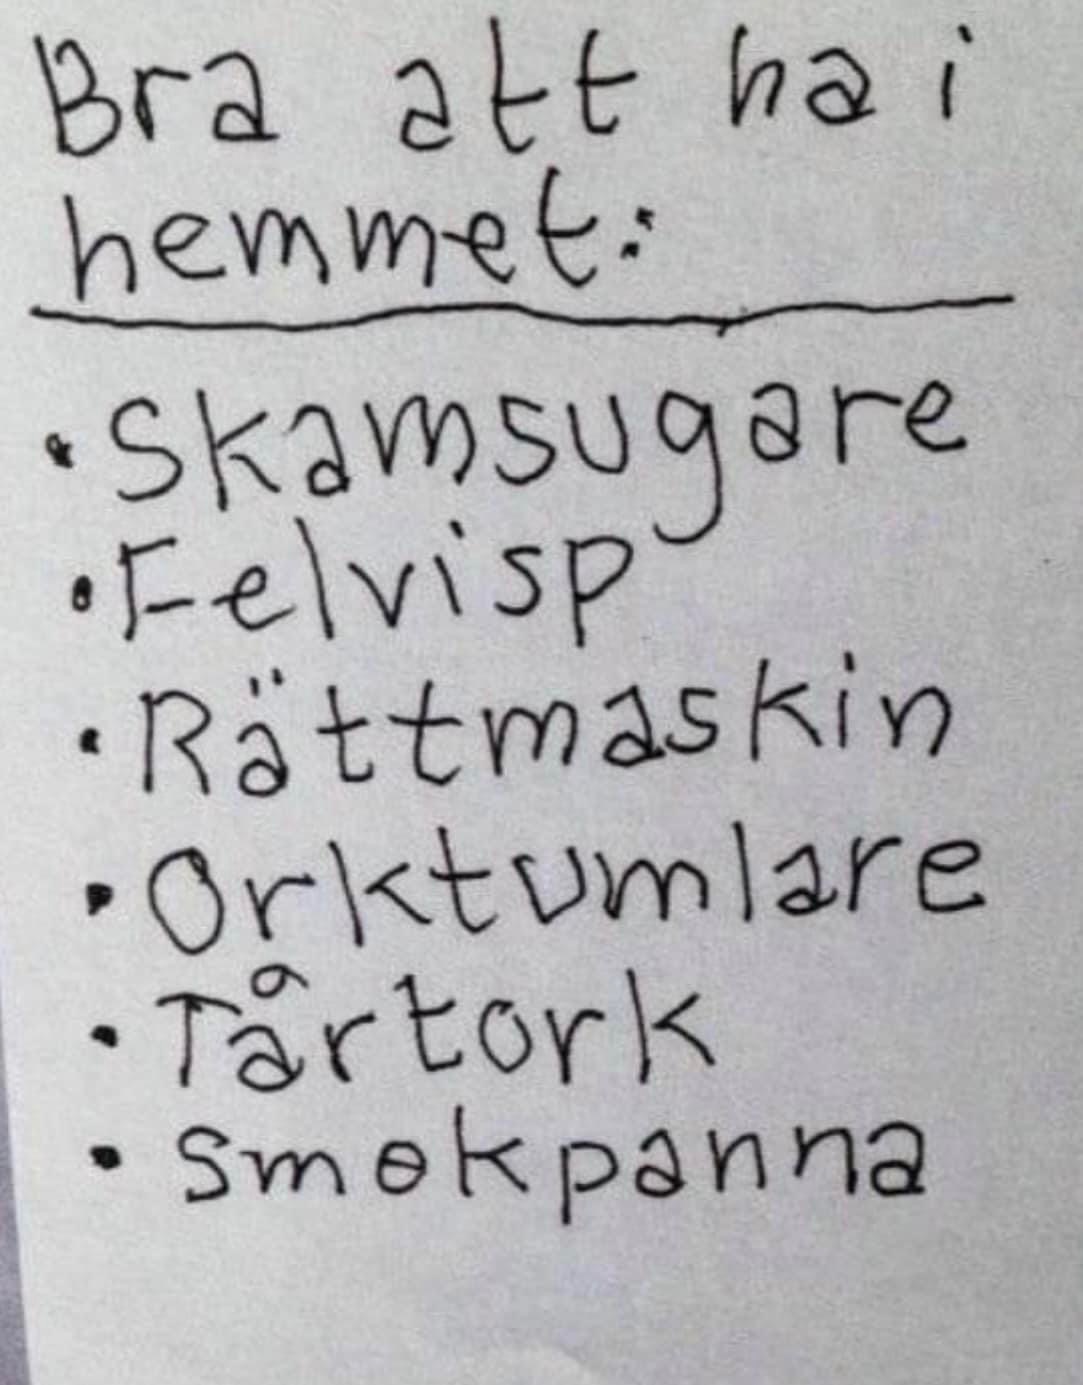 Bra att ha i
hemmet:
• Skamsugare
• Felvisp
• Rättmaskin
• Orktumlare
• Tårtork
• Smekpanna